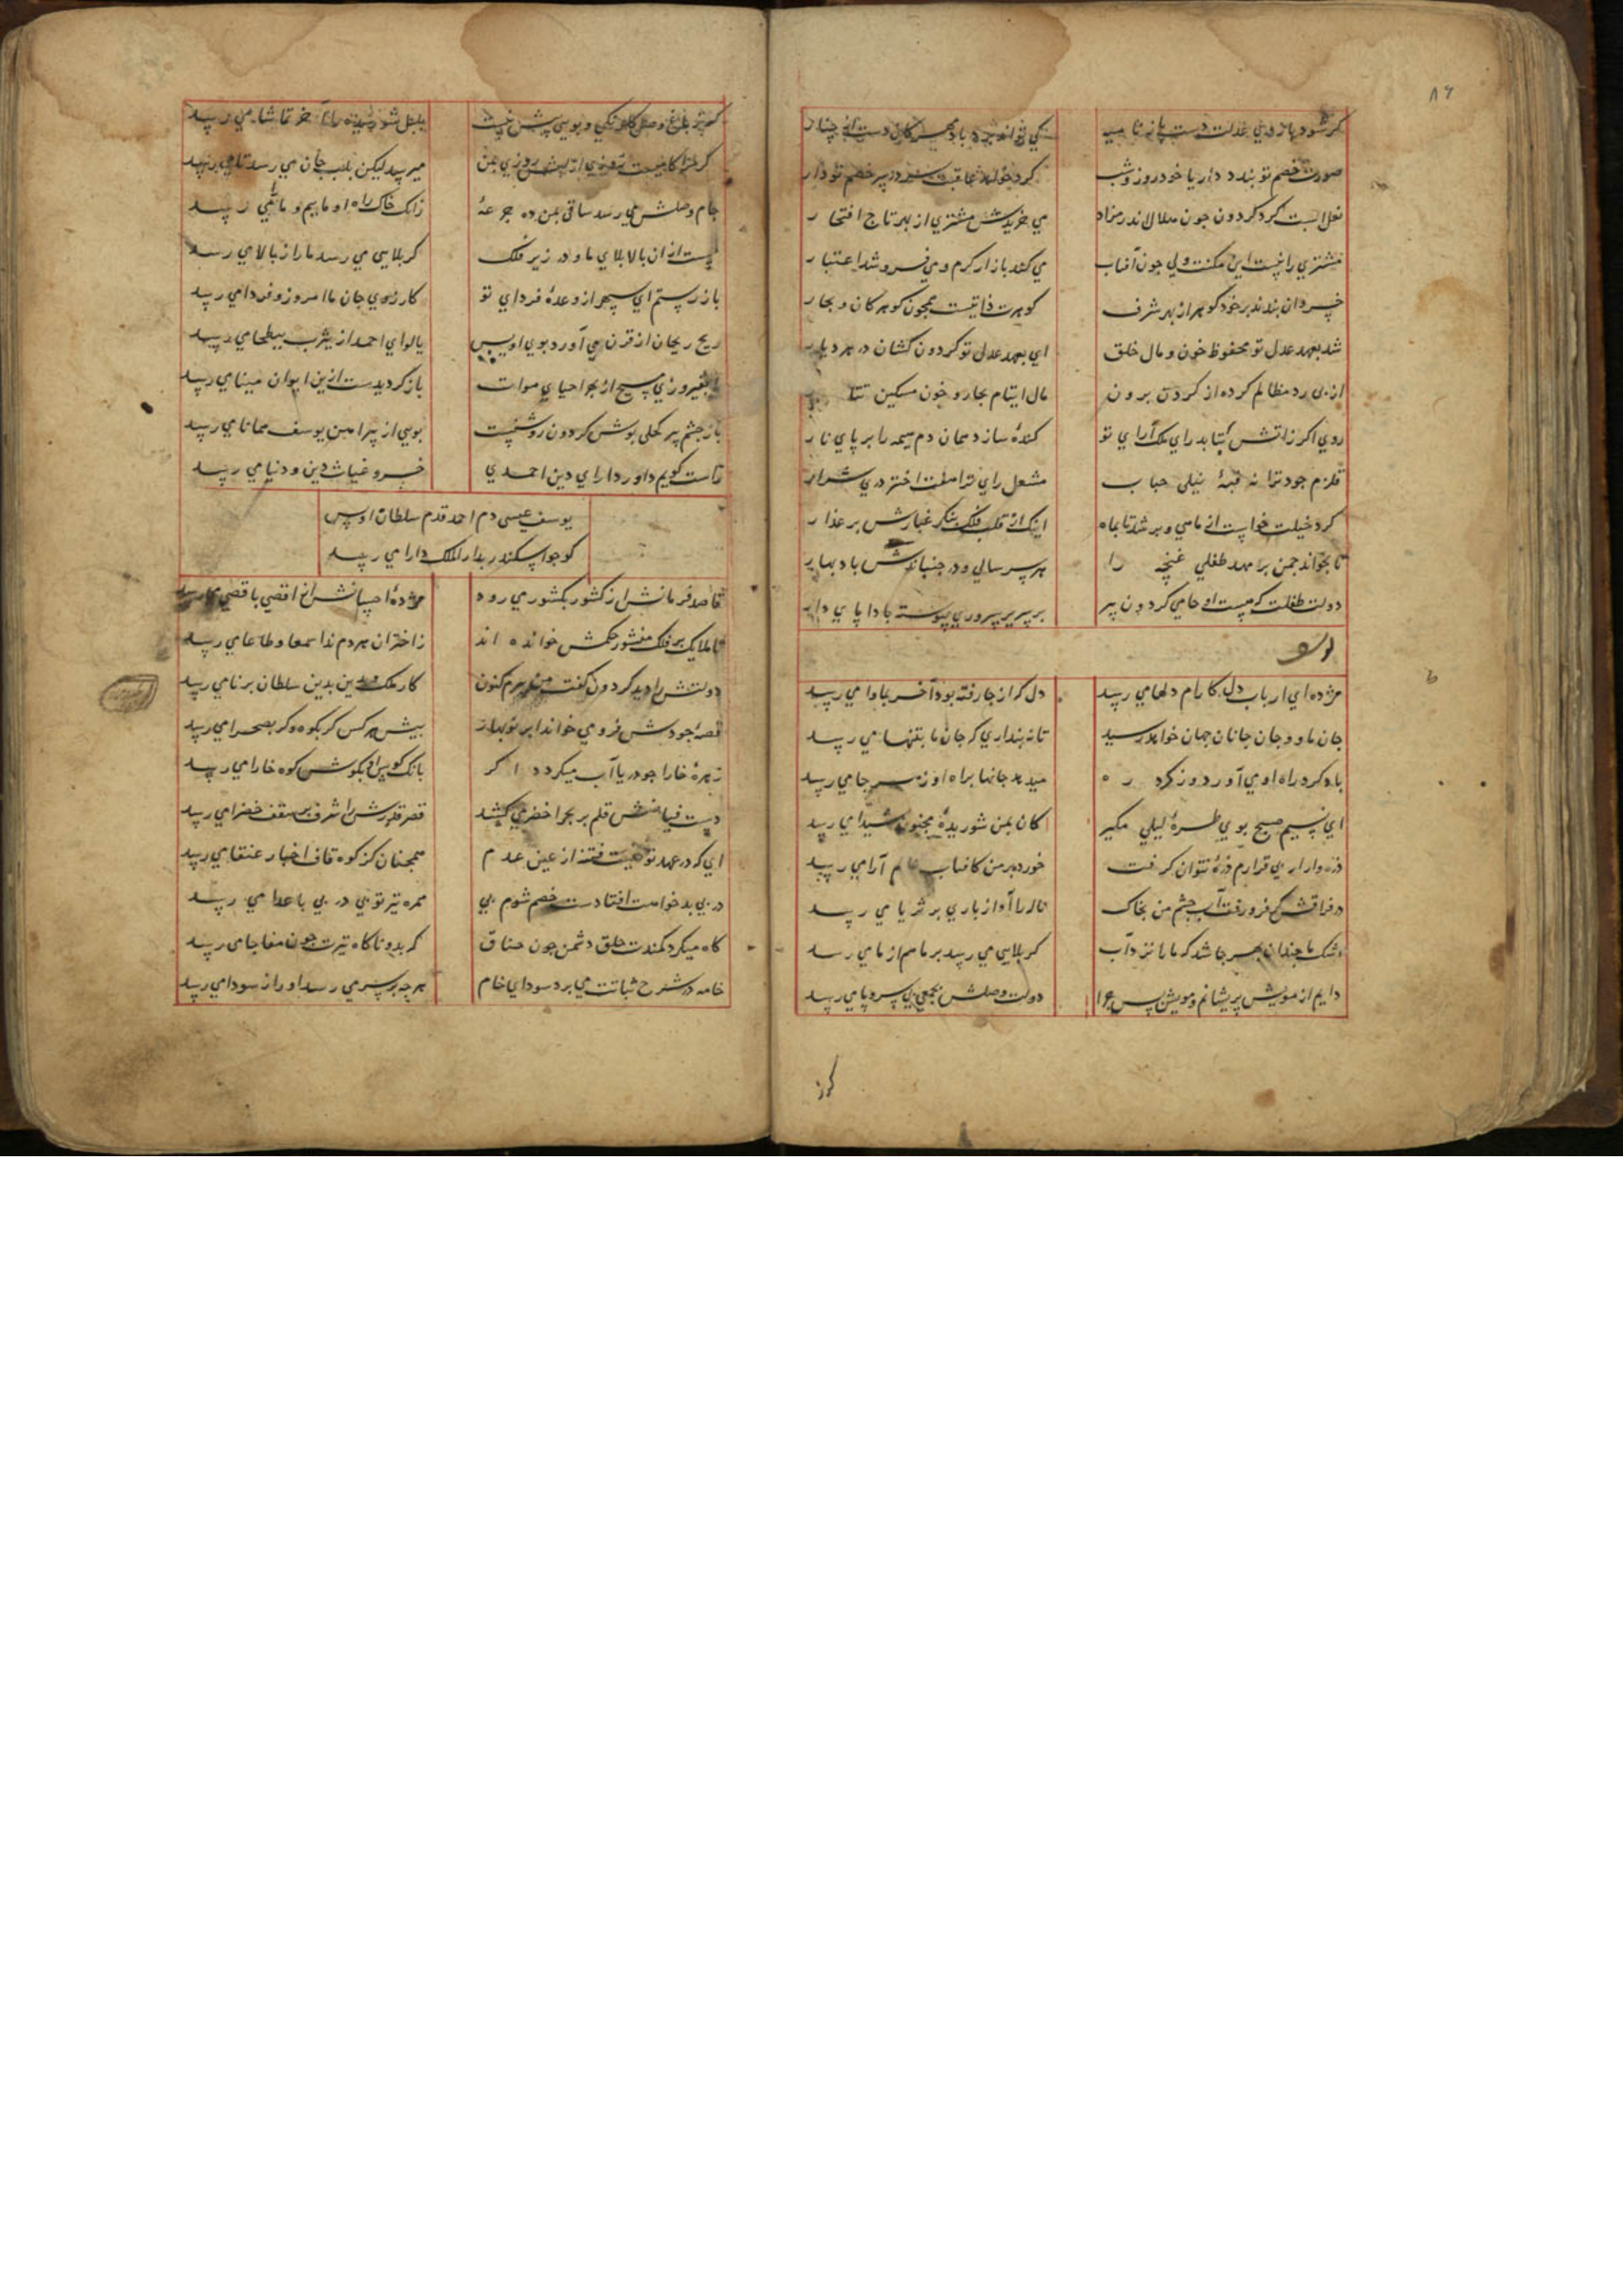 ۸۶
کر شود بازوی عدلت دست
کی تواند برد باد
صورت خصم تو بندد دار با خود روز و شب
کرد خواهد عاقبت در سر خصم تو دار
نعل کرد کردون جون هلال اندر مزاد
می خریدش مشتری از بهر تاج افتخار
مشتری را نیست این مکنت ولی جون آفتاب
می کند بازار کرم و می فروشد اعتبار
خسروان بندند بر خود کوهر از بهر شرف
کوهرت ذاتیست همجون کوهر کان و بحار
شد بعهد عدل تو محفوظ خون و مال خلق
ای بعهد عدل تو کردون کشان در هر دیار
از پی رد مظالم کرده از کردن برون
مال ایتام بحار و خون مسکین تتار
روی اکر ز آتش بتابد رای ملک آرای تو
کنده سازد همان دم همه را بر پای نار
قلزم جود ترا نه قبهٔ نیلی حباب
مشعل رای ترا هفت اختر دری شرار
کرد خیلت خواست از ماهی و بر شد تا بماه
اینک از فلک بنکر غبارش بر عذار
تا بخواند جمن بر مهد طفلی غنچه را
هر سر سالی و در جنباندش باد بهار
دولت طفلت که هست او حامی کردون پیر
بر سریر سروری پیوسته بادا پای دار
وله
مژده ای ارباب دل کارام دلها می رسد
دل که از جا رفته بود آخر بماوا می رسد
جان ما و جان جانان جهان خواهد رسید
تا نه پنداری که جان ما بتنها می رسد
باد کرد راه او می آورد وز کرد ره
میدهد جانها براه او ز هر جا می رسد
ای نسیم صبح بوی طرهٔ لیلی مکیر
کان بمن شوریدهٔ مجنون شیدا می رسد
ذره وار ار بی قرارم ذره نتوان کرفت
خورده بر من کافتاب عالم آرا می رسد
در فراقش کر فرو رفت آب چشم من بخاک
ناله را آواز باری بر ثریا می رسد
اشک ما جندان بسر جا شد که ما را نزد آب
کر بلایی می رسد بر ما هم از ما می رسد
دایم از مویش پریشانم و مویش پس چرا
دولت وصلش بجمعی بی سر و پا می رسد
کز
کز باغ وصل کل رنکی و بویی بیش نیست
بلبل شوریده را آخر تماشا می رسد
کر مرا کامیست روزی از لبش روزی بمن
میرسد لیکن بلب جان می رسد تا می رسد
جام وصلش می رسد ساقی بمن ده جرعهٔ
زانک خاک راه او ماییم و ما می رسد
نیست از ان بالا بلای ما و در زیر فلک
کر بلایی می رسد ما را ز بالا می رسد
باز رستم ای سپهر از وعدهٔ فردای تو
کارزوی جان ما امروز و فردا می رسد
ریح ریحان از قرن می آورد بوی اویس
یا لوای احمد از یثرب ببطحا می رسد
بفیروزی مسیح از بهر احیای موات
باز کردیدست ازین ایوان مینا می رسد
باز چشم پیر کحلی پوش کردون روشنست
بویی از پیراهن یوسف همانا می رسد
راست کویم داور دارای دین احمدی
خسرو غیاث دین و دنیا می رسد
یوسف عیسی دم احمد قدم سلطان اویس
کو جو اسکندر بدار الملک دارا می رسد
قاصد فرمانش از کشور بکشور می رود
مژدهٔ احسانش از اقصی باقصی می رسد
تا ملایک بر فلک منشور حکمش خوانده اند
ز اختران هر دم ندا سمعا و طاعا می رسد
دولتش را دید کردون کفت هم کنون
کار ملک و دین بدین سلطان برنا می رسد
قصهٔ جودش فرو می خواند ابر نوبهار
پیش هر کس کر بکوه و کر بصحرا می رسد
زهرهٔ خارا جو دریا آب میکردد اکر
بانک کوس او بکوش کوه خارا می رسد
دست فیاضش قلم بر بحر اخضر می کشد
قصر قدرش را شرف بر سقف خضرا می رسد
ای که در عهد تو نیست فتنه از عین عدم
همجنان کز کوه قاف اخبار عنقا می رسد
در پی بدخواهت افتادست خصم شوم پی
همره تیر تو پی در پی باعدا می رسد
کاه میکرد کمندت حلق دشمن جون خناق
کر بدو ناکاه تیرت جون مفاجا می رسد
خامه در شرح ثباتت می برد سودای خام
هر چه بر سر می رسد او را ز سودا می رسد